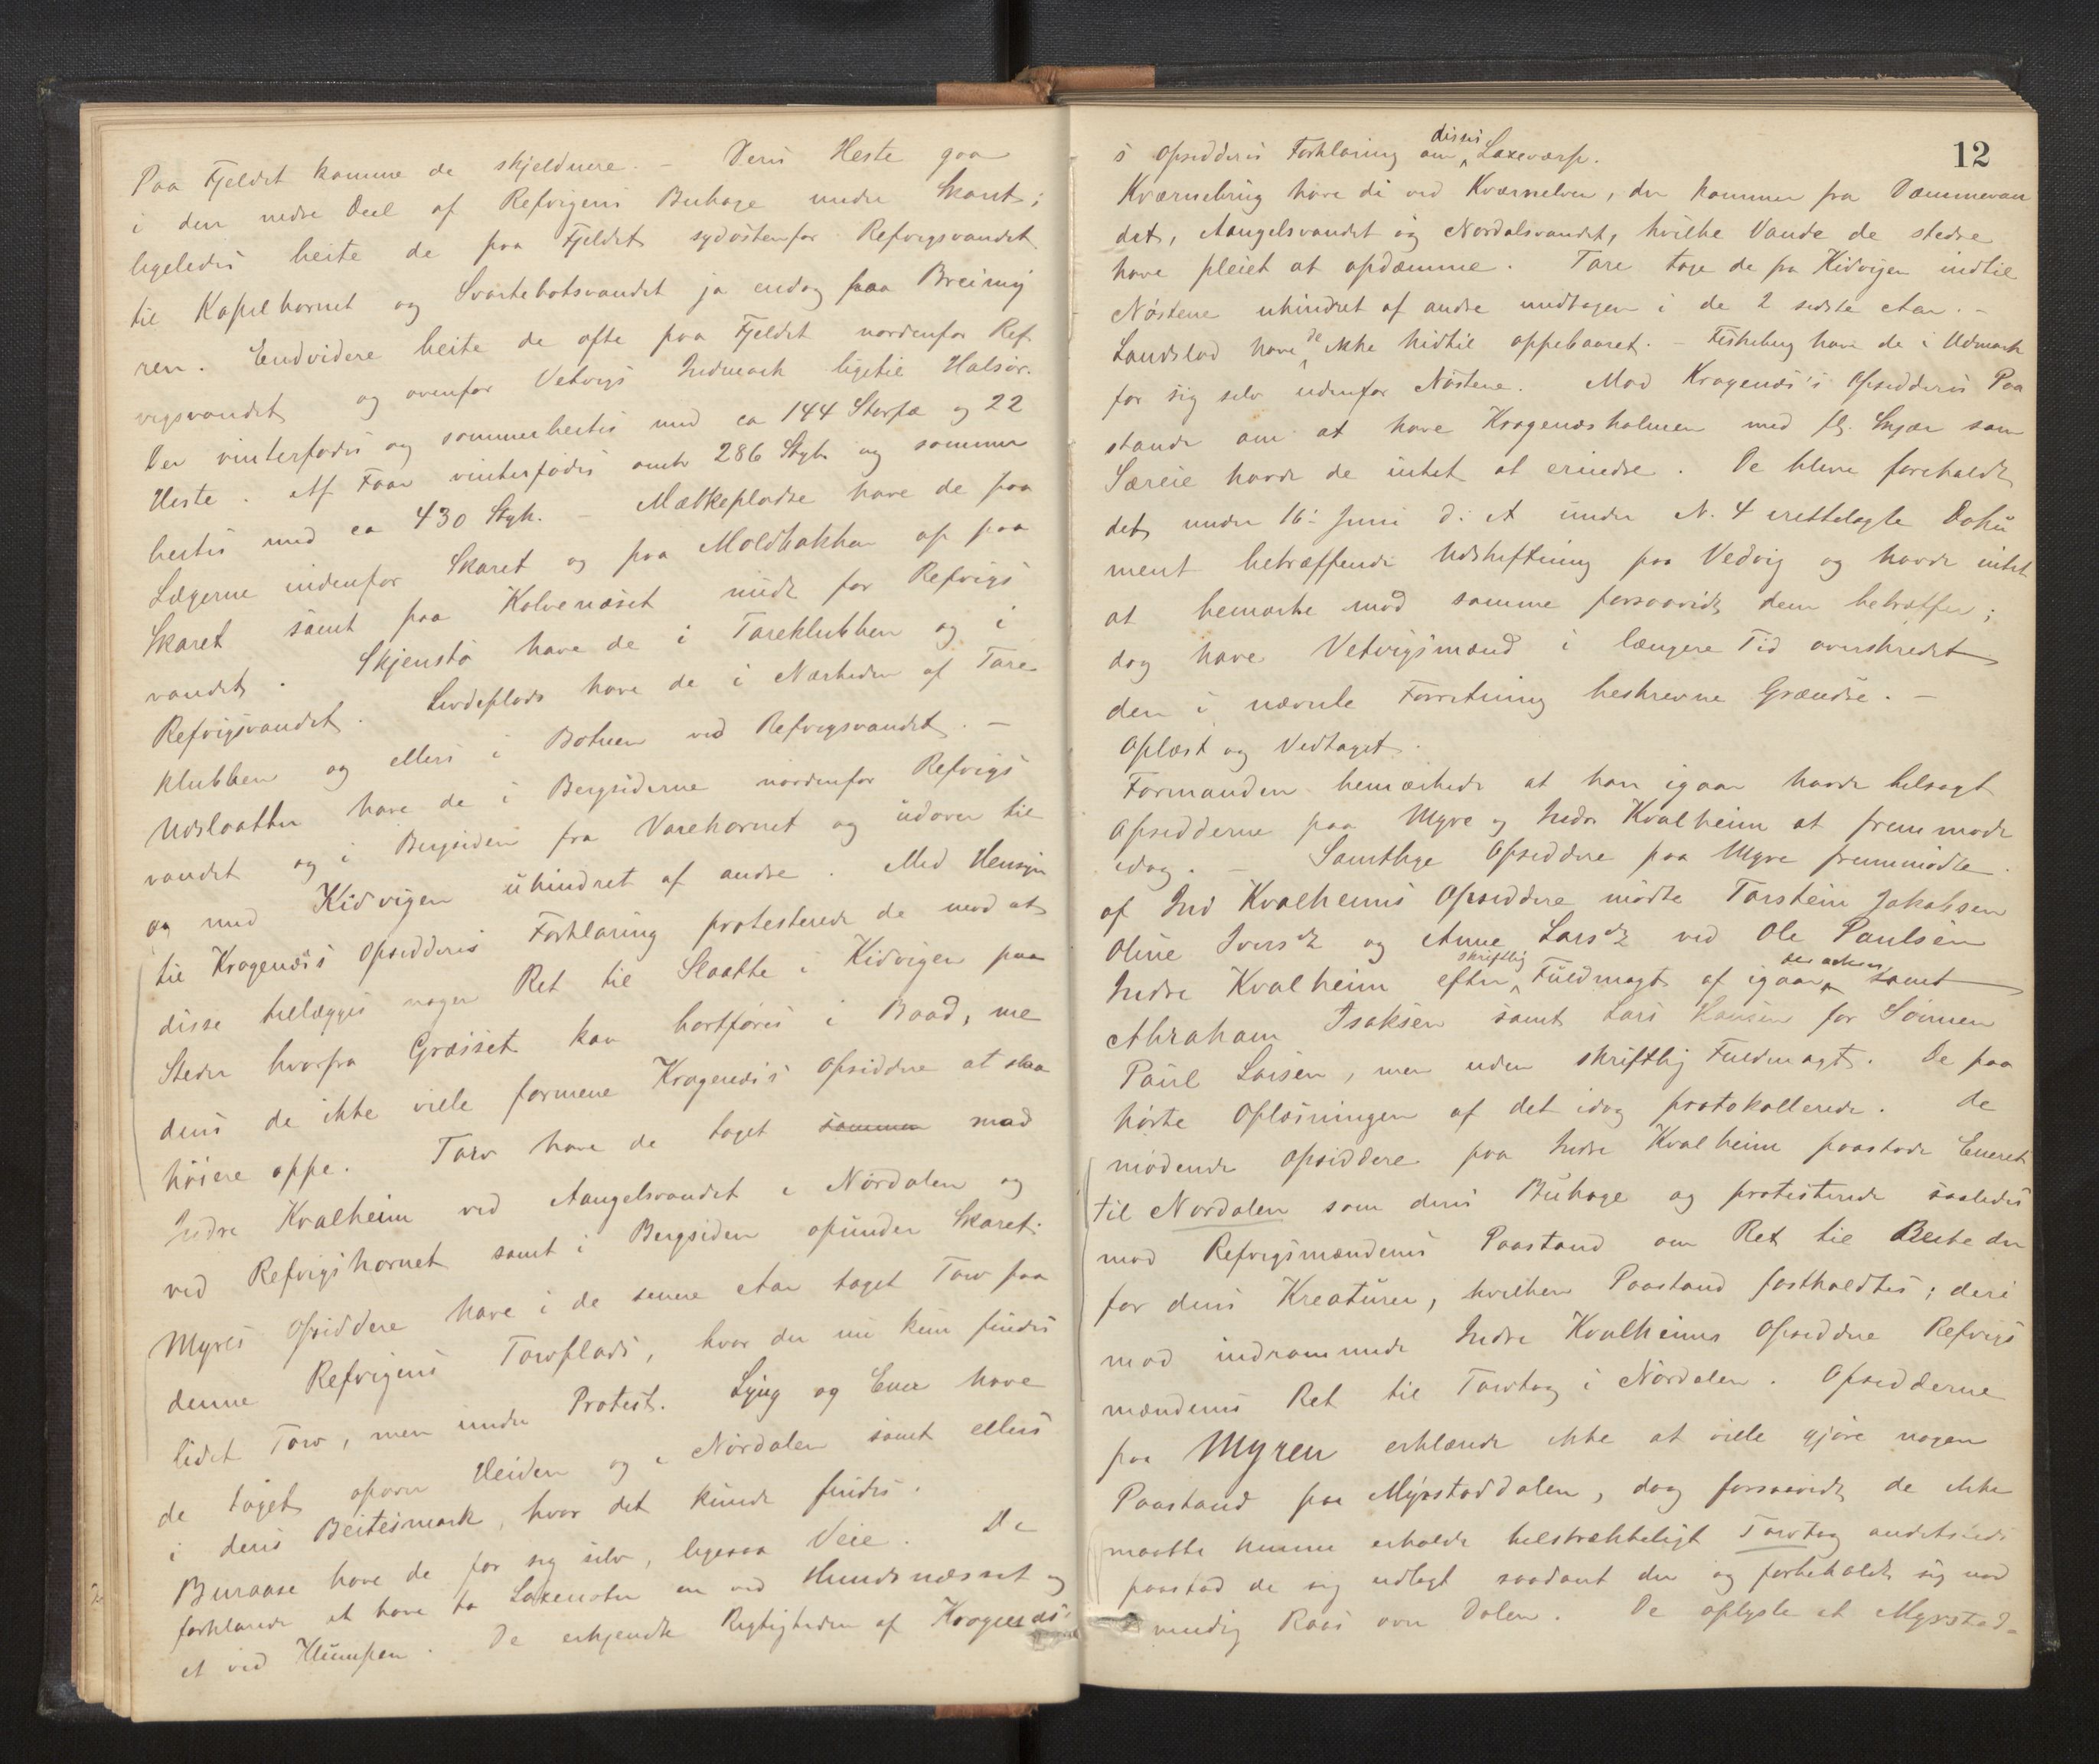 Paa Fjeldet komme de skjeldnere. – Deres Heste gaa
i den nedre Deel af Refvigens Buhage under Skaret;
ligeledes beite de paa Fjeldet sydøstenfor Refvigsvandet
til Kapelhornet og Svartebotsvandet ja endog paa Breimy
ren. Endvidere beite de ofte paa Fjeldet nordenfor Ref
vigsvandet og ovenfor Vetvigs Indmark ligetil Halsør.
Der vinterfødes og sommerbeites med ca 144 Storfæ og 22
Heste. Af Faar vinterfødes omtr 286 Styk og sommer
beites med ca 430 Styk. – Mælkepladse have de paa
Lægerne indenfor Skaret og paa Moldbakken op paa
Skaret samt paa Kalvenæset midt for Refvigs
vandet. Skjenstø have de i Tareklubben og i
Refvigsvandet. Lvdeplads have de i Nærheden af Tare
klubben og ellers i Botnen ved Refvigsvandet. –
Udslaatter have de i Bergsiderne nordenfor Refvigs
vandet og i Bergsiden fra Varehornet og udover til
og med Kidvigen uhindret af andre. Med Hensyn
til Kragenæs's Opsidderes Forklaring protesterede de mod at
disse tillægges nogen Ret til Slaatte i Kidvigen paa
Steder hvorfra Græsset kan bortføres i Baad, me
dens de ikke ville formene Kragenæs's Opsiddere at slaa
høiere oppe. Torv have de taget sammen mod
Indre Kvalheim ved Aangelsvandet i Nordalen og
ved Refvigshornet samt i Bergsiden opunder Skaret.
Myres Opsiddere have i de senere Aar taget Torv paa
denne Refvigens Torvplads, hvor der nu kun findes
lidet Torv, men under Protest. Lyng og Ener have
de taget opover Heiden og i Nordalen samt ellers
i deres Beitesmark, hvor det kunde findes.
Buraase have de for sig selv, ligesaa Veie. De
forklarede at have to Laxenøter en ved Hundsnæsset og
et ved Klumpen. De erkjendte Rigtigheden af Kragenæs'
12
s Opsidderes Forklaring om disses Laxeværp.
Kværnebrug have de ved Kværnelven, der kommer fra Dæmmevan
det, Aangelsvandet og Nordalsvandet, hvilke Vande de stedse
have pleiet at opdæmme. Tare tage de fra Kidvigen indtil
Nøstene uhindret af andre undtagen i de 2 sidste Aar. –
Landslod have de ikke hidtil oppebaaret. – Fiskeberg have de i Udmark
for sig selv udenfor Nøstene. Mod Kragenæs's Opsidderes Paa
stande om at have Kragenæsholmen med fl. Skjær som
Særeie havde de intet at erindre. De bleve foreholdt
det under 16de Juni d. A under N. 4 irettelagte Doku
ment betræffende Udskiftning paa Vedvig og havde intet
at bemærke mod samme forsaavidt dem betræffer;
dog have Vetvigsmænd i længere Tid overskredet
den i nævnte Forretning beskrevne Grændse. –
Oplæst og Vedtaget.
Formanden bemærkede at han igaar havde tilsagt
Opsidderne paa Myre og Indre Kvalheim at fremmøde
idag. – Samtlige Opsiddere paa Myre fremmødte.
af Ind Kvalheims Opsiddere mødte Torstein Jakobsen
Oline Iversdt og Anne Larsdt ved Ole Paulsen
Indre Kvalheim efter skriftlig Fuldmagt af igaar samt
Abraham Isaksen samt Lars Hansen for Sønnen
Paul Larsen, men uden skriftlig Fuldmagt. De paa
hørte Oplæsningen af det idag protokollerede. De
mødende Opsiddere paa Indre Kvalheim paastode Eneret
til Nordalen som deres Buhage og protesterede saaledes
mod Refvigsmændenes Paastand om Ret til Beite der
for deres Kreaturer, hvilken Paastand fastholdtes; deri
mod indrømmede Indre Kvalheims Opsiddere Refvigs
mændenes Ret til Torvtag i Nordalen. Opsidderne
paa Myren erklærede ikke at ville gjøre nogen
Paastand paa Myrstaddalen, dog forsaavidt de ikke
maatte kunne erholde tilstrækkeligt Torvtag andetsteds
paastod de sig udlagt saadant der og forbeholdt sig nød
vendig Raas over Dalen. De oplyste at Myrstad-